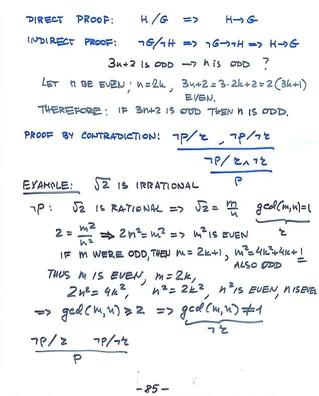 DIRECT PROOF: H/G => H→G
INDIRECT PROOF: ¬G/¬H => ¬G→¬H => H→G
3n+2 IS ODD → n IS ODD ?
LET n BE EVEN; n=2k, 3n+2=3·2k+2=2(3k+1)
EVEN.
THEREFORE: IF 3n+2 IS ODD THEN n IS ODD.
PROOF BY CONTRADICTION: ¬P/r , ¬P/¬r
¬P/r∧¬r
P
EXAMPLE: √2 IS IRRATIONAL
¬P: √2 IS RATIONAL => √2 = m/n gcd(m,n)=1
r
2 = m²/n² => 2n²=m² => m² IS EVEN
IF m WERE ODD, THEN m=2k+1, m²=4k²+4k+1
ALSO ODD
THUS m IS EVEN, m=2k,
2n²=4k², n²=2k², n² IS EVEN, n IS EVEN
=> gcd(m,n)≥2 => gcd(m,n)≠1
¬r
¬P/r ¬P/¬r
P
-85-